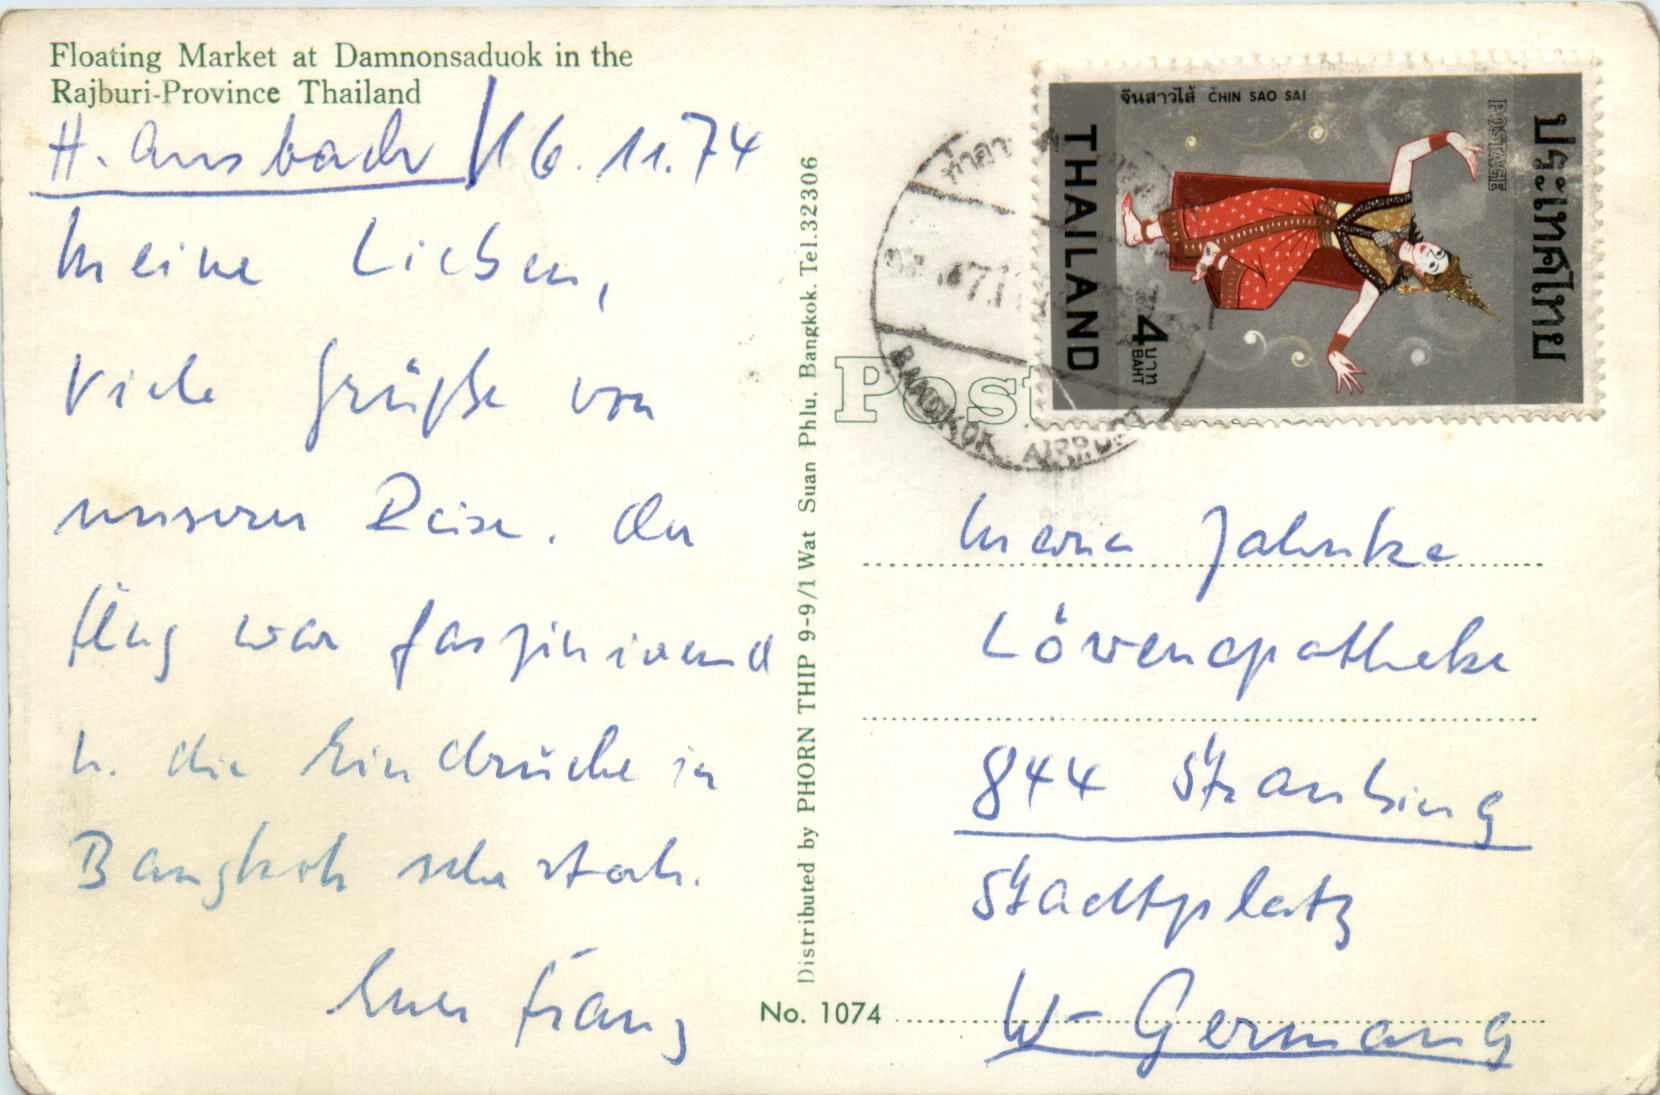 Floating Market at Damnonsaduok in the
Rajburi-Province Thailand
H. Ansbach 16.11.74
Meine Lieben,
Viele Grüße von
unserer Reise. Der
Flug war faszinierend
u. die Eindrücke in
Bangkok sehr stark.
Euer Franz
Distributed by PHORN THIP 9-9/1 Wat Suan Phlu, Bangkok. Tel.32306
No. 1074
Post
จีนสาวไส้ CHIN SAO SAI
POSTAGE
ประเทศไทย
THAILAND
4 บาท
BAHT
BANGKOK AIRPORT
Jahnke
Löwenapotheke
844 Straubing
Stadtplatz
W-Germany